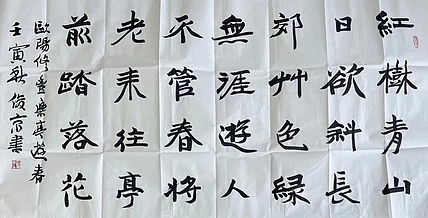 紅樹青山
日欲斜長
郊艸色綠
無涯遊人
不管春將
老来往亭
前踏落花
歐陽修豐樂亭遊春
壬寅秋俊書